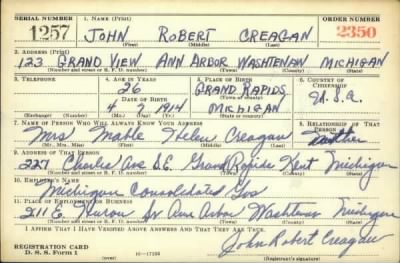 SERIAL NUMBER 1. NAME (Print) ORDER NUMBER
1257 JOHN ROBERT CREAGAN 2350
(First) (Middle) (Last)
2. ADDRESS (Print)
123 GRAND VIEW ANN ARBOR WASHTENAW MICHIGAN
(Number and street or R. F. D. number) (Town) (County) (State)
3. TELEPHONE 4. AGE IN YEARS 5. PLACE OF BIRTH 6. COUNTRY OF CITIZENSHIP
26 GRAND RAPIDS
DATE OF BIRTH (Town or county) U.S.A.
4 2 1914 MICHIGAN
(Exchange) (Number) (Mo.) (Day) (Yr.) (State or country)
7. NAME OF PERSON WHO WILL ALWAYS KNOW YOUR ADDRESS 8. RELATIONSHIP OF THAT PERSON
Mrs Mable Helen Creagan Mother
(Mr., Mrs., Miss) (First) (Middle) (Last)
9. ADDRESS OF THAT PERSON
227 Charles Ave S.E. Grand Rapids Kent Michigan
(Number and street or R. F. D. number) (Town) (County) (State)
10. EMPLOYER'S NAME
Michigan Consolidated Gas
11. PLACE OF EMPLOYMENT OR BUSINESS
211 E. Huron St Ann Arbor Washtenaw Michigan
(Number and street or R. F. D. number) (Town) (County) (State)
I AFFIRM THAT I HAVE VERIFIED ABOVE ANSWERS AND THAT THEY ARE TRUE.
REGISTRATION CARD John Robert Creagan
D. S. S. Form 1 16-17105 (Registrant's signature)